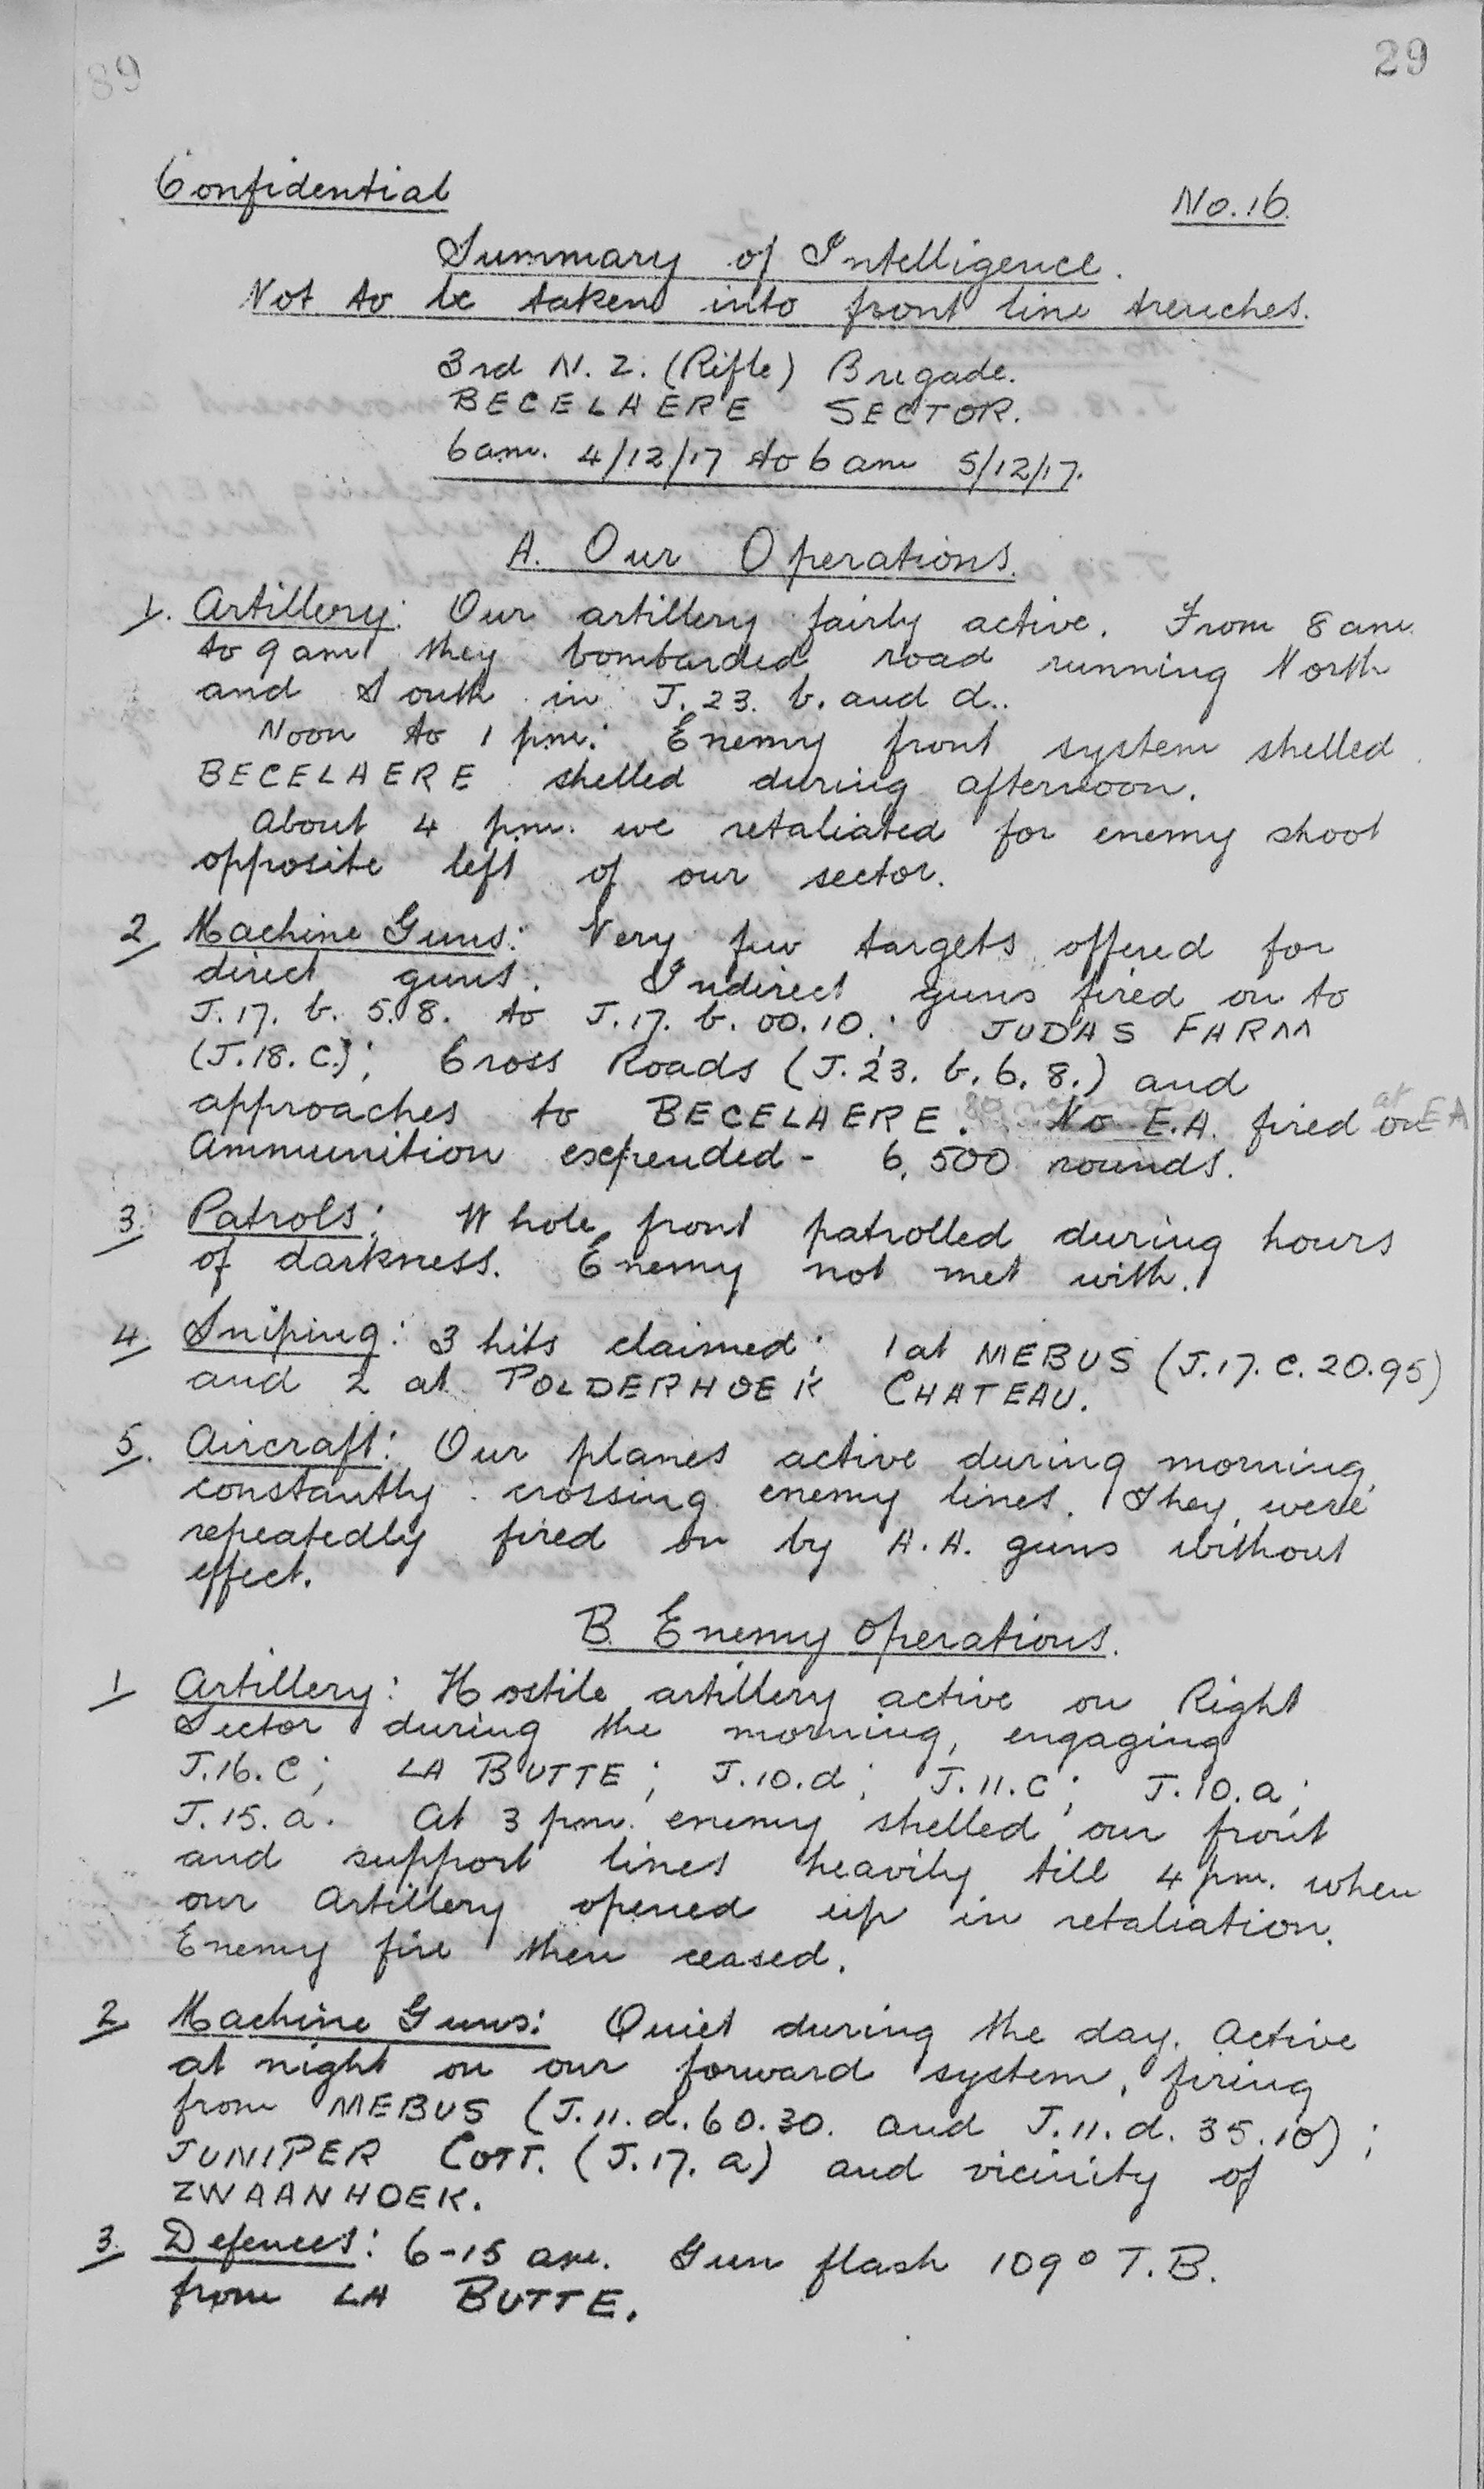 89
29
Confidential
No. 16.
Summary of Intelligence.
Not to be taken into front line trenches.
3rd N. Z. (Rifle) Brigade.
BECELAERE SECTOR.
6 am. 4/12/17 to 6 am 5/12/17.
A. Our Operations.
1. Artillery: Our artillery fairly active. From 8 am.
to 9 am they bombarded road running North
and South in J. 23. b. and d..
Noon to 1 pm: Enemy front system shelled.
BECELAERE shelled during afternoon.
About 4 pm. we retaliated for enemy shoot
opposite left of our sector.
2 Machine Guns: Very few targets offered for
direct guns. Indirect guns fired on to
J. 17. b. 5.8. to J. 17. b. 00.10.; JUDAS FARM
(J. 18. C.); Cross Roads (J. 23. b. 6. 8.) and
approaches to BECELAERE. 80 No E.A. fired on at EA
Ammunition expended - 6,500 rounds.
3. Patrols: Whole front patrolled during hours
of darkness. Enemy not met with.
4. Sniping: 3 hits claimed; 1 at MEBUS (J. 17. C. 20. 95)
and 2 at POLDERHOEK CHATEAU.
5. Aircraft: Our planes active during morning,
constantly crossing enemy lines. They were
repeatedly fired on by A. A. guns without
effect.
B. Enemy Operations.
1 Artillery: Hostile artillery active on Right
Sector during the morning, engaging
J. 16. C; LA BUTTE; J. 10. d; J. 11. C; J. 10. a;
J. 15. a. At 3 pm. enemy shelled our front
and support lines heavily till 4 pm. when
our Artillery opened up in retaliation.
Enemy fire then ceased.
2 Machine Guns: Quiet during the day. Active
at night on our forward system, firing
from MEBUS (J. 11. d. 60. 30. and J. 11. d. 35. 10);
JUNIPER COTT. (J. 17. a) and vicinity of
ZWAANHOEK.
3. Defences: 6-15 am. Gun flash 109° T. B.
from LA BUTTE.